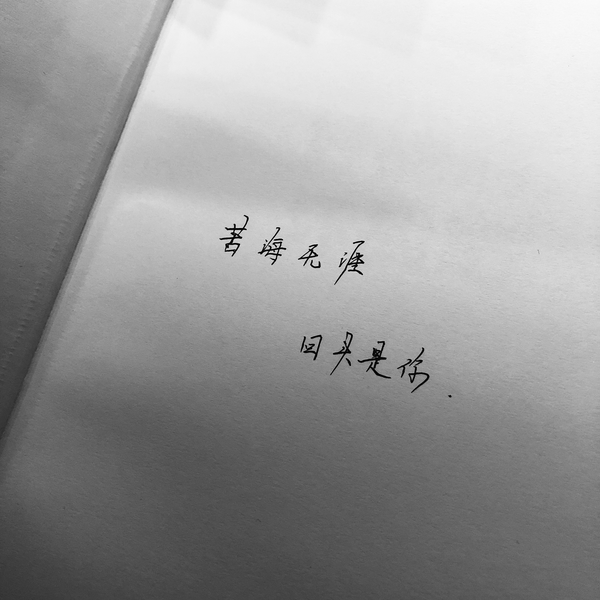 苦海无涯
回头是你.